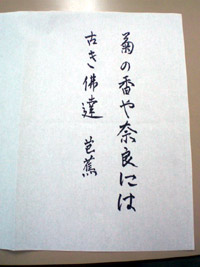 菊の香や奈良には
古き佛達 芭蕉